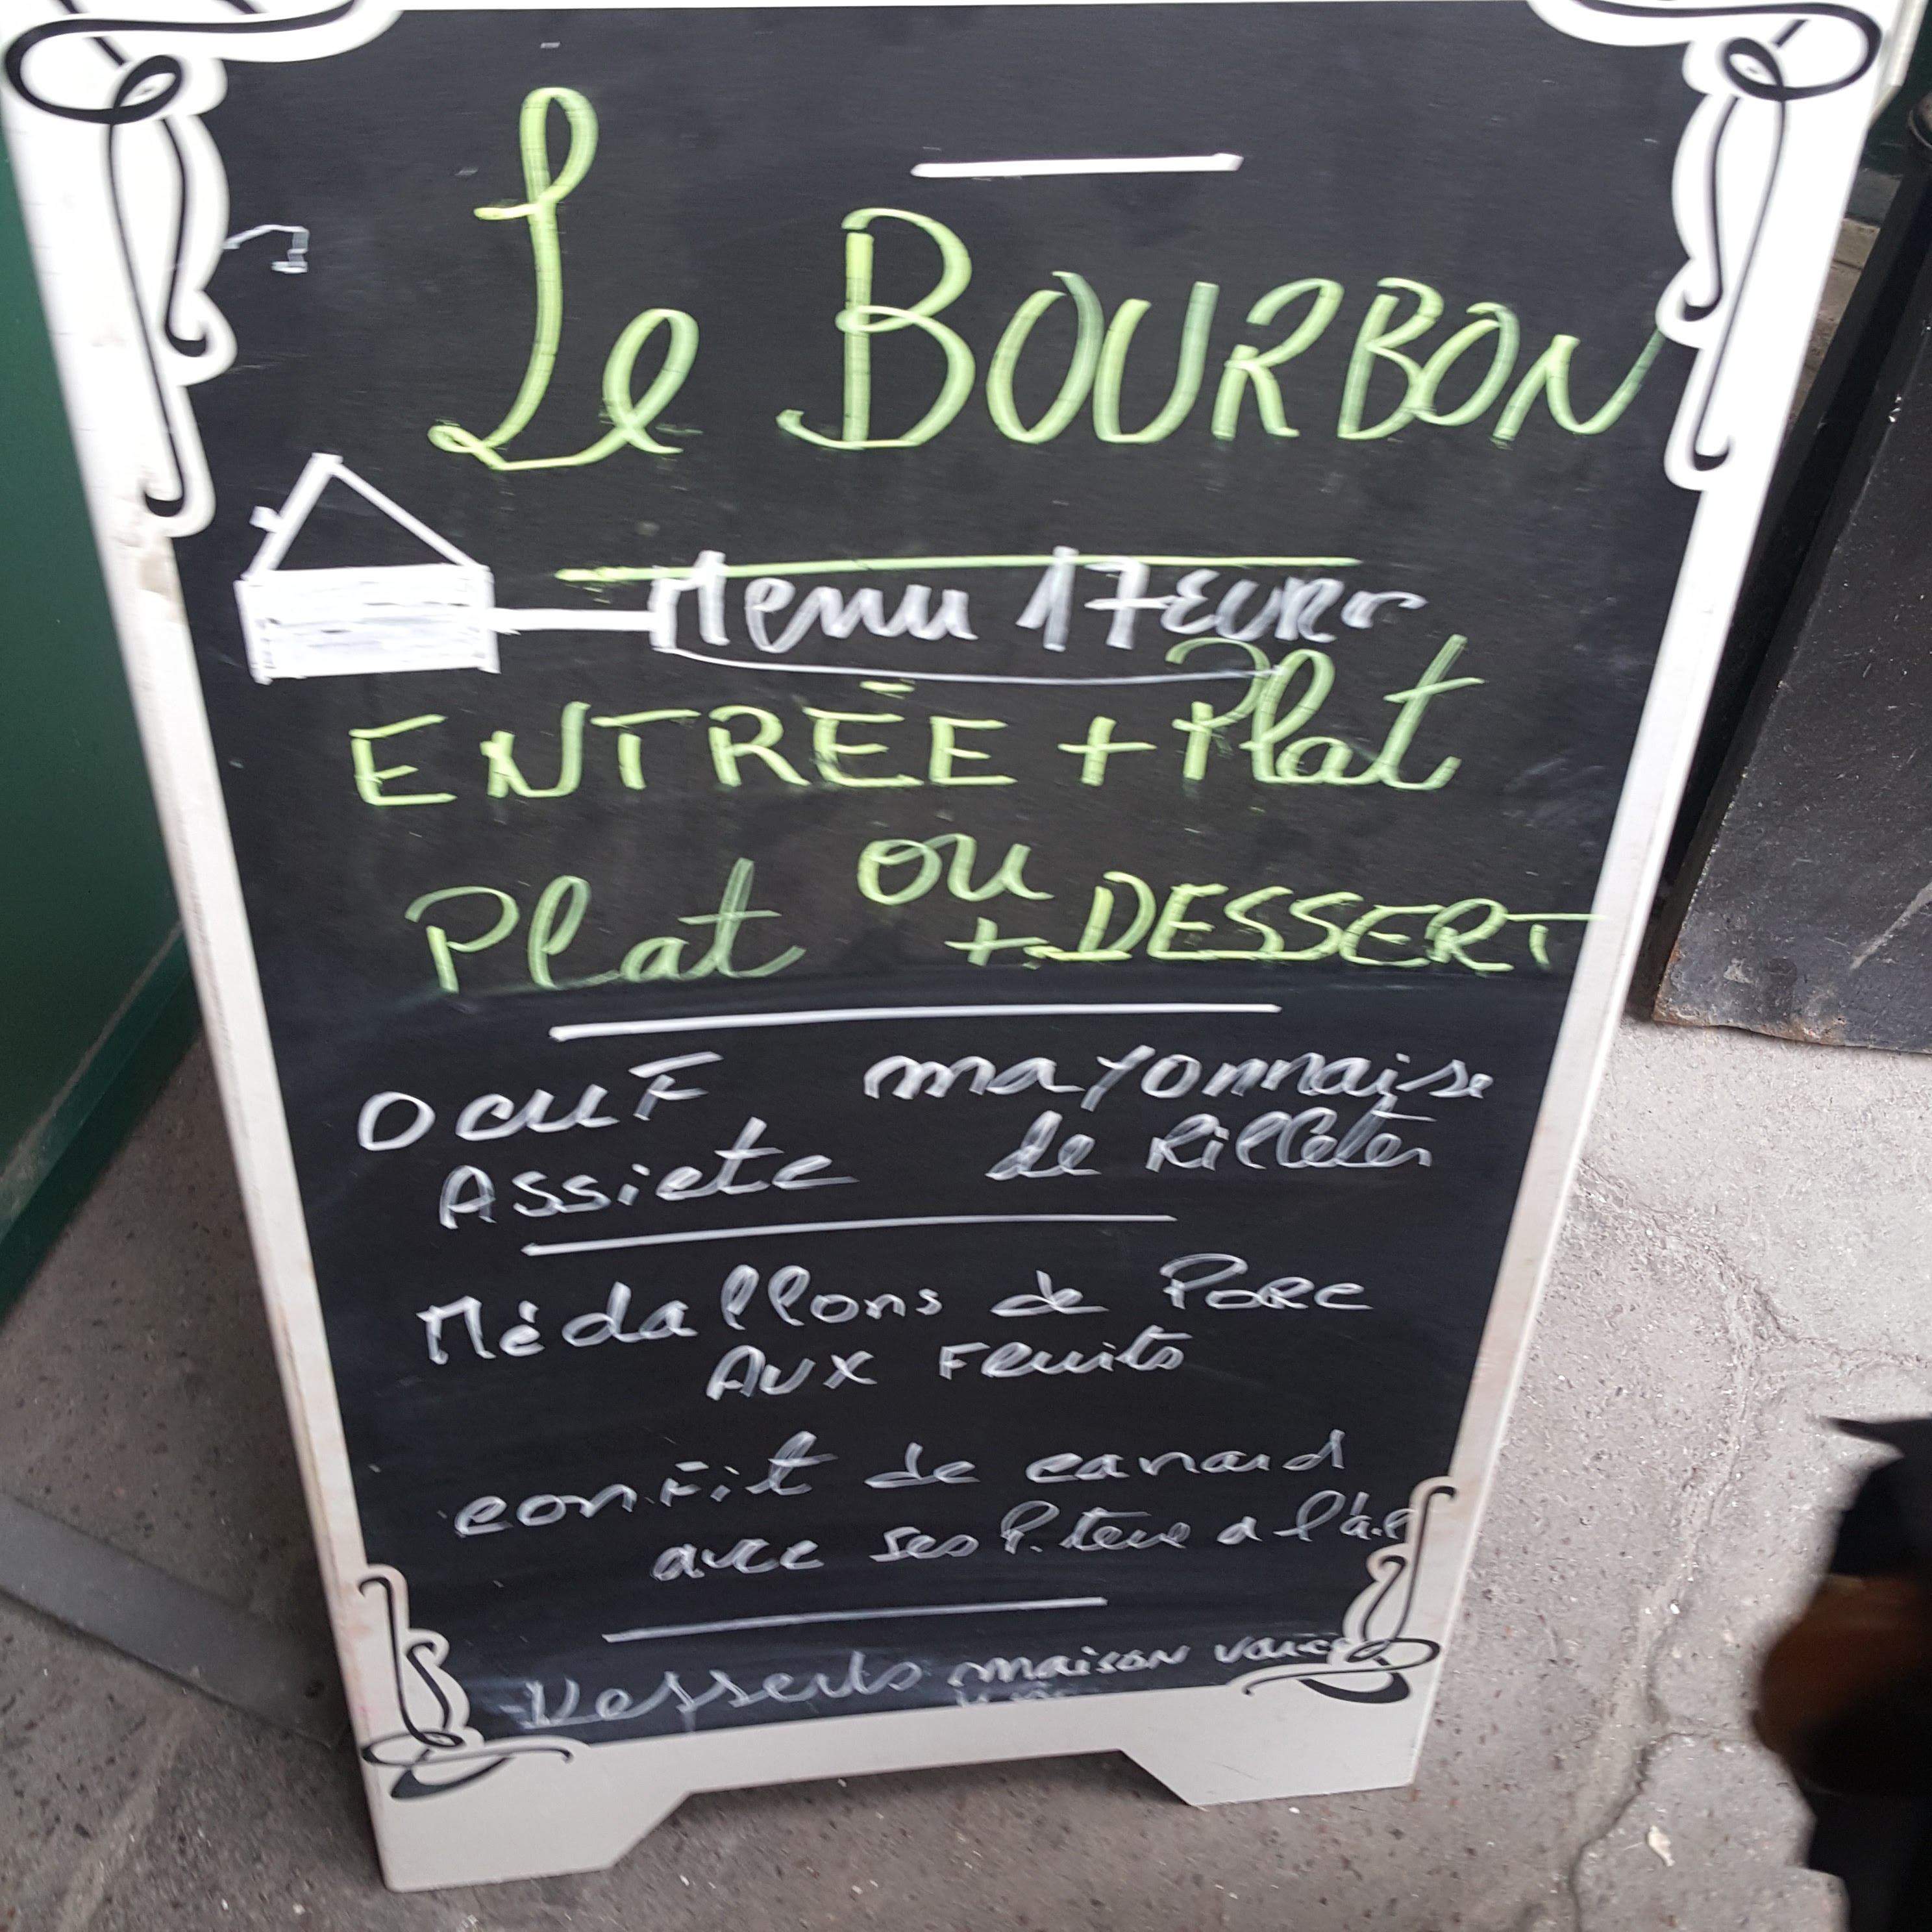 Le BOURBON
Menu 17 EURO
ENTRÉE + Plat
ou
Plat + DESSERT
OeuF mayonnaise
Assiete de Rillettes
Médallons de Porc
AUX Fruits
conFit de canard
avec ses P. terre a l'ail
Desserts maison